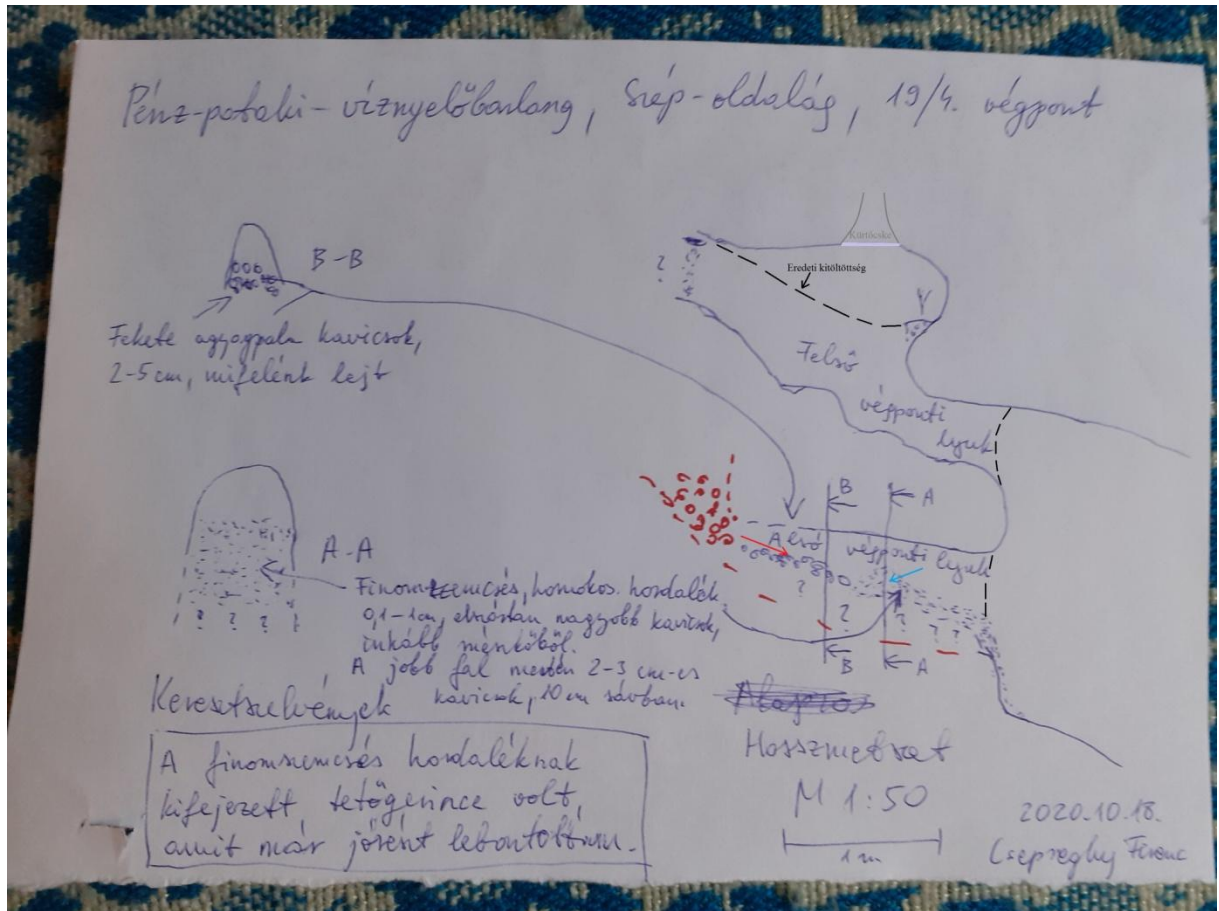 Pénz-pataki-víznyelőbarlang, Szép-oldalág, 19/4. végpont
B-B
Fekete agyagpala kavicsok,
2-5 cm, mifelénk lejt
?
Kürtőcske
Eredeti kitöltöttség
Felső
végponti
lyuk
A-A
Finomszemcsés, homokos hordalék
0,1-1cm, elszórtan nagyobb kavicsok,
inkább mészkőből.
A jobb fal mentén 2-3 cm-es
kavicsok, 10 cm sávban.
? ? ? ?
Keresztszelvények
A finomszemcsés hordaléknak
kifejezett tetőgerince volt,
amit már jórészt lebontottam.
B A
Alsó végponti lyuk
? ? ? ? ?
B A
Hosszmetszet
M 1:50
1 m
2020.10.18.
Csepreghy Ferenc